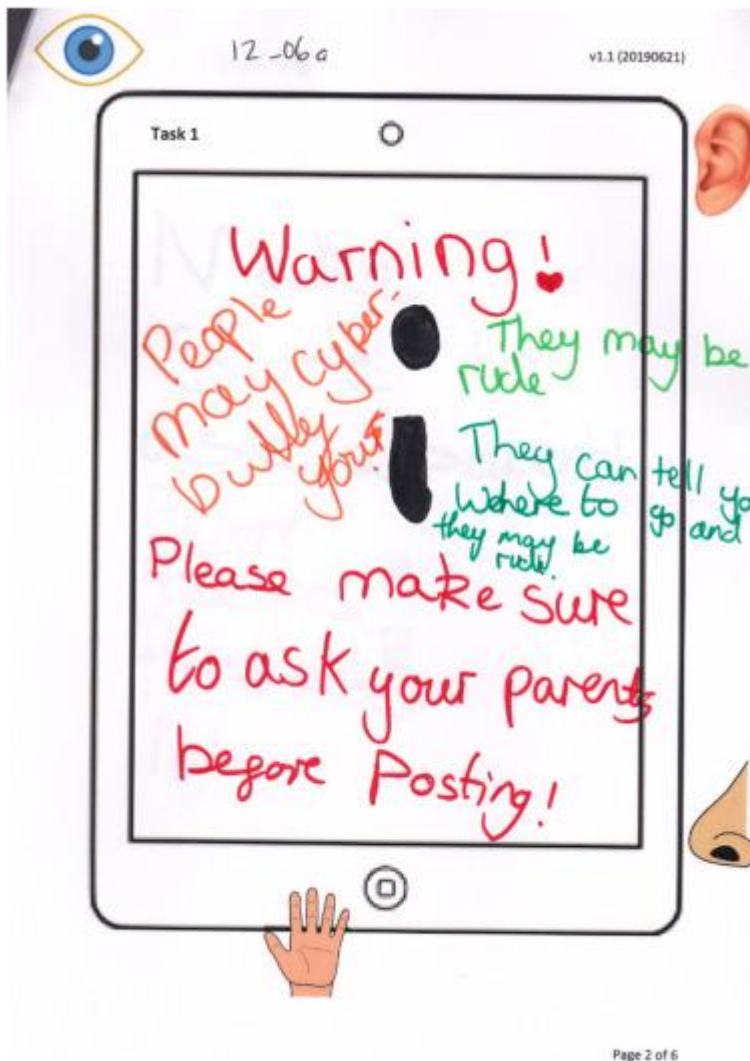 12-06a
v1.1 (20190621)
Task 1
Warning!
People
may cyber
bully
you!
They may be
rude
They can tell yo
Where to go and
they may be
rude.
Please make sure
to ask your parents
before Posting!
Page 2 of 6